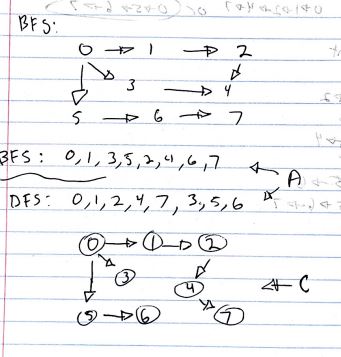 BFS:
0 → 1 → 2
3 → 4
5 → 6 → 7
BFS: 0,1,3,5,2,4,6,7
A
DFS: 0,1,2,4,7,3,5,6
0 → 1 → 2
3 4 C
5 → 6 7